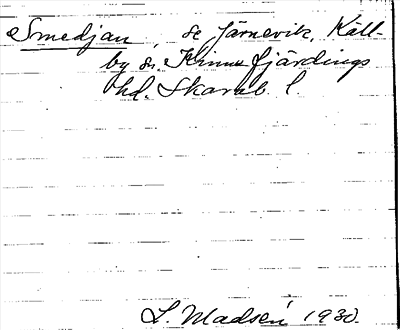 Smedjan, se Järnevik, Käll-
by sn. Kinne fjärdings
hd. Skarab. l.
L. Madsén 1930.